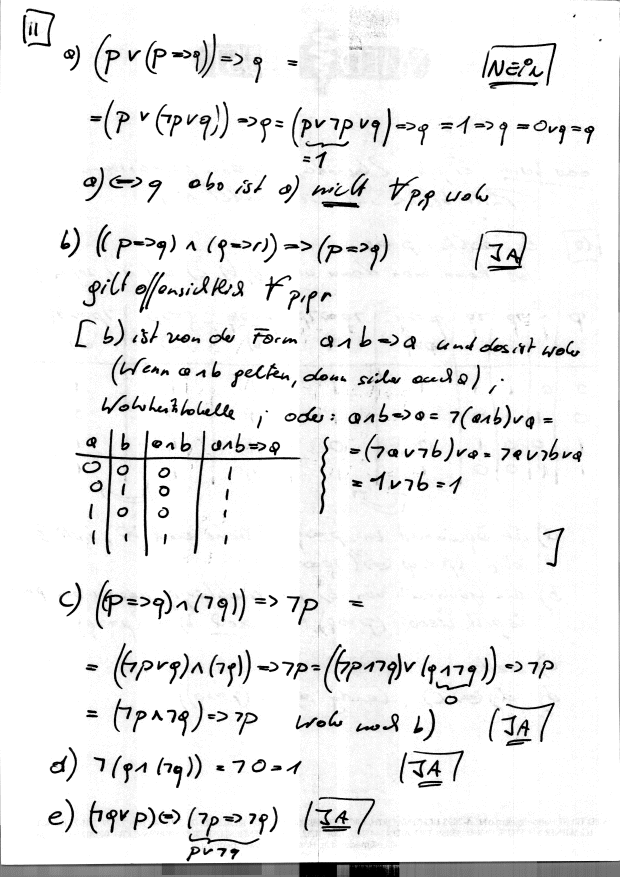 11
a) (p ∨ (p => q)) => q = NEIN
= (p ∨ (¬p∨q)) => q = (p∨¬p∨q) => q = 1 => q = 0∨q = q
= 1
a) <=> q also ist a) nicht ∀p,q wahr
b) ((p=>q) ∧ (q=>r)) => (p=>q) JA
gilt offensichtlich ∀p,q,r
[ b) ist von der Form a∧b => a und das ist wahr
(Wenn a∧b gelten, dann sicher auch a) ;
Wahrheitstabelle ; oder: a∧b=>a = ¬(a∧b)∨a =
a b a∧b a∧b=>a = (¬a∨¬b)∨a = ¬a∨¬b∨a
0 0 0 1 = 1∨¬b = 1
0 1 0 1
1 0 0 1
1 1 1 1 ]
c) ((p=>q)∧(¬q)) => ¬p =
= ((¬p∨q)∧(¬q)) => ¬p = ((¬p∧¬q)∨(q∧¬q)) => ¬p
0
= (¬p∧¬q) => ¬p wahr nach b) JA
d) ¬(q∧(¬q)) = ¬0 = 1 JA
e) (¬q∨p) <=> (¬p => ¬q) JA
p∨¬q